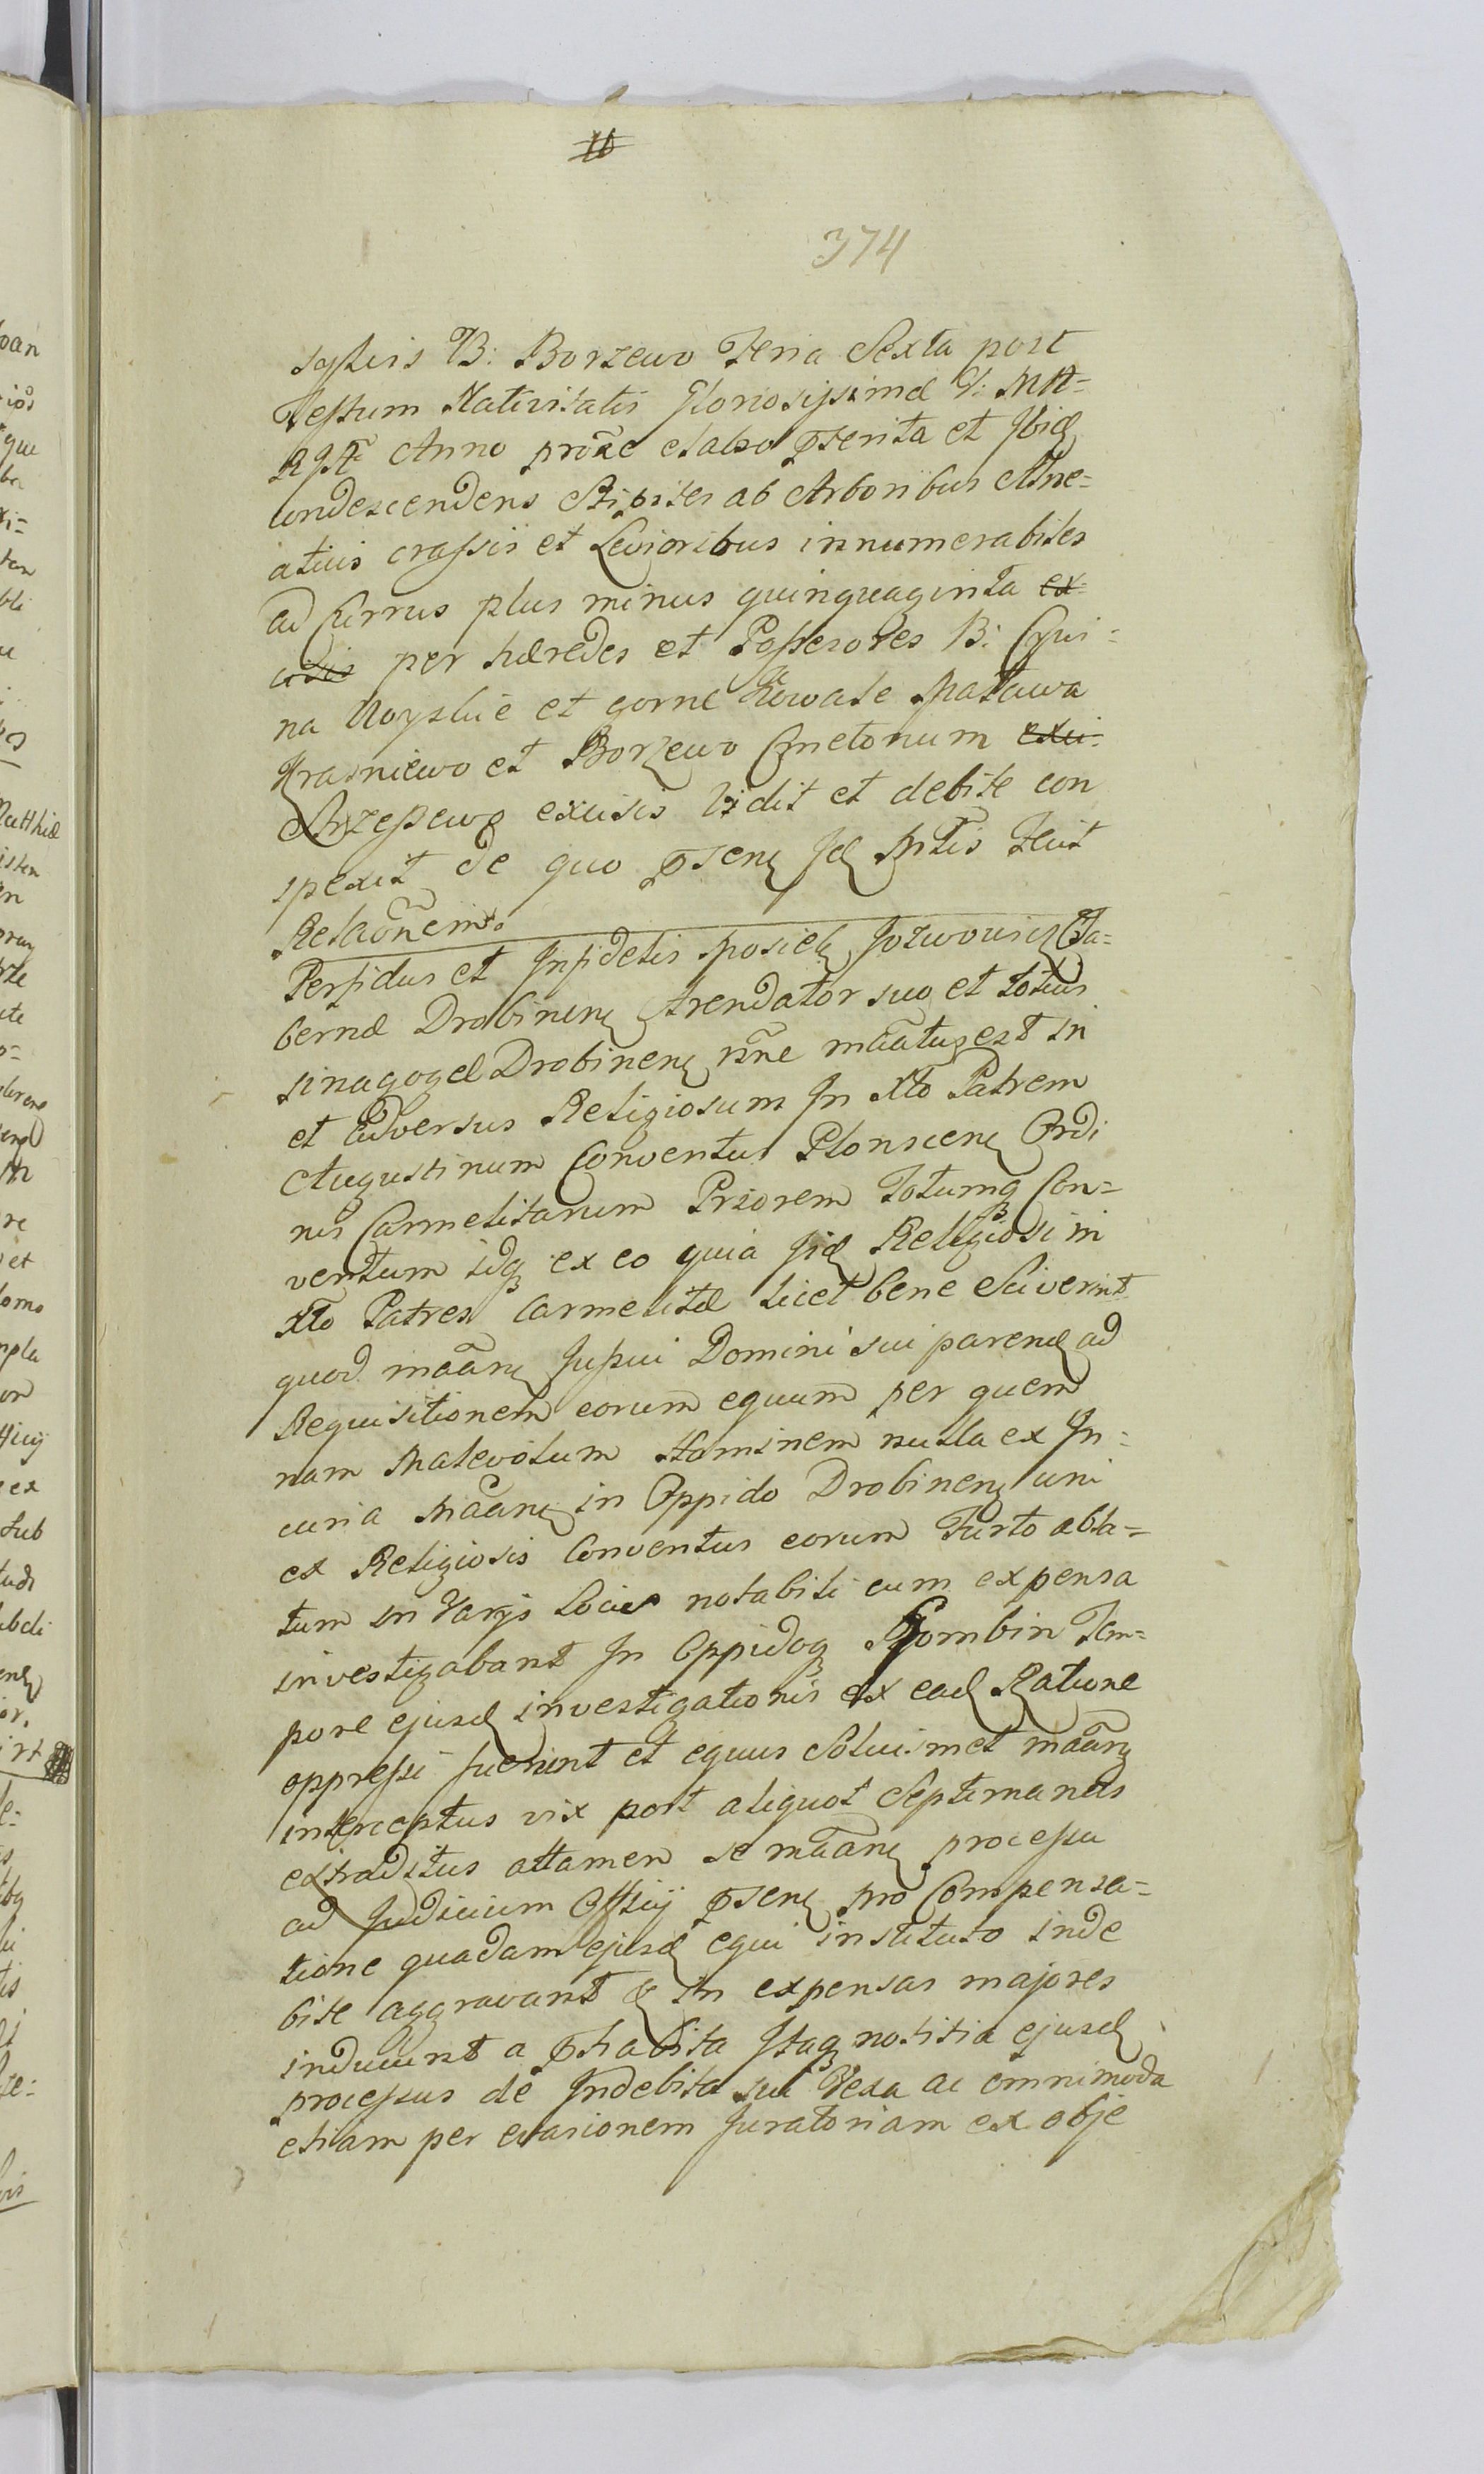 16
374
sylvis B: Borzewo Feria Sexta post
Festum Nativitatis Gloriosissimæ V: MA=
RIÆ Anno proxe elapso pterita et Ibid
condescendens Stipites ab Arboribus
crassis et Levioribus innumerabiles
ad Currus plus minus quinquaginta ex-
cisis per hæredes et Possesores B:
na et gorne Kowale Malawa
Krasniewo et Borzewo Cmetonum exci-
exciisis Vidit et debite con
spexit de quo psens Id Mtis Fecit
Relaõnem.
Perfidus et Infidelis Mosiek Jozwowicz Ta=
bernæ Drobinens Arendator suo et totius
sinagogæ Drobinens nne mãatus est in
et adversus Religiosum In Xto Patrem
Augustinum Conventus Plonscens Ordi
nis Carmelitarum Priorem Totumq Con=
ventum idq ex eo quia Iid Religiosi in
Xto Patres Carmelitæ licet bene Sciverint
quod mãans Jussui Domini sui parend ad
Requisitionem eorum equum per quem
nam Malevolum Hominem nulla ex In=
curia Mãans in Oppido Drobinens uni
ex Religiosis Conventus eorum Furto abla=
tum in Varijs Locis notabili cum expensa
investigabant In Oppidoq Gombin Tem=
pore ejusd investigationis ex ead Ratione
oppressi fuerunt et equus Solummet mãans
interceptus vix post aliquot Septimanas
extraditus attamen se mãans processu
ad Judicium Officij psens pro Compensa=
tione quadam ejusd equi instituto inde
bite aggravant & In expensas majores
inducunt a pthabita Itaq notitia ejusd
processus de Indebita sui Vexa ac omnimoda
etiam per evasionem Juratoriam ex obje